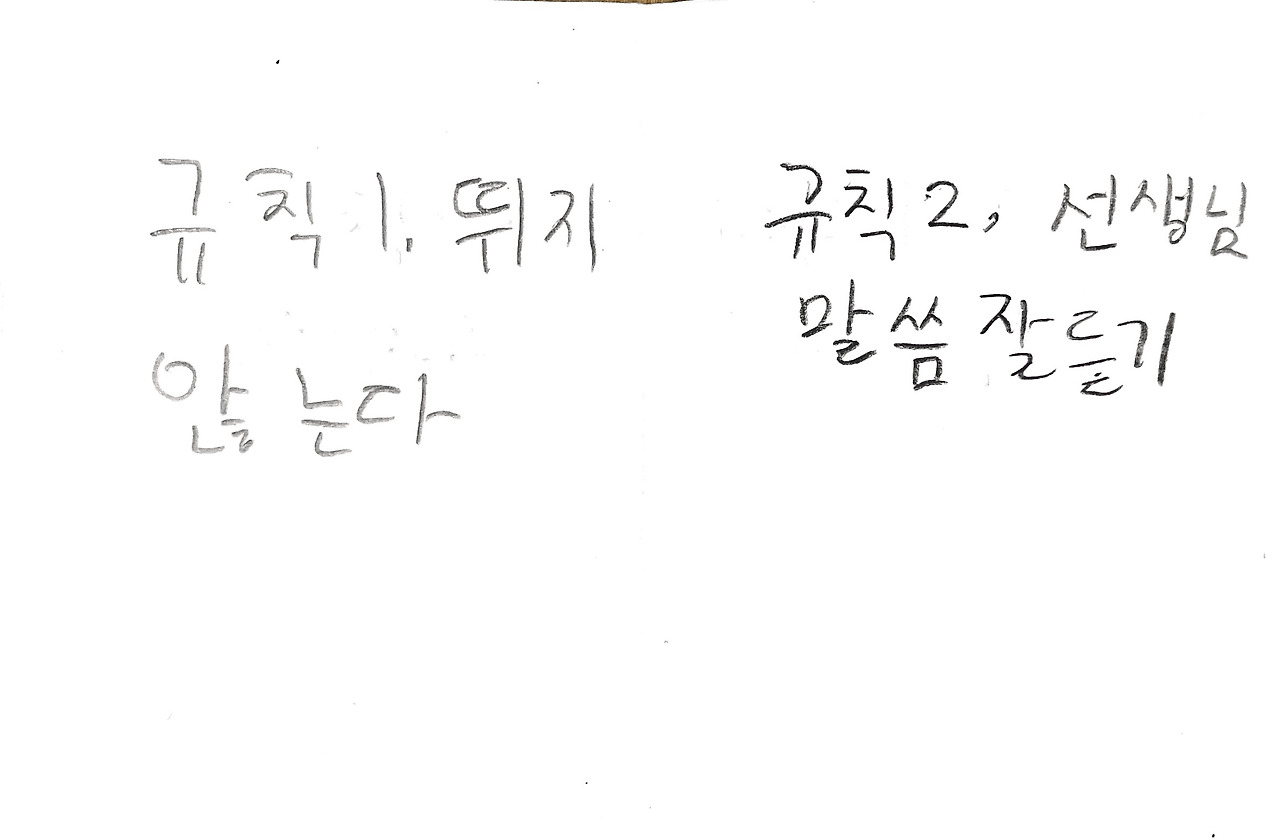 규칙1. 뛰지
않는다
규칙2, 선생님
말씀 잘듣기